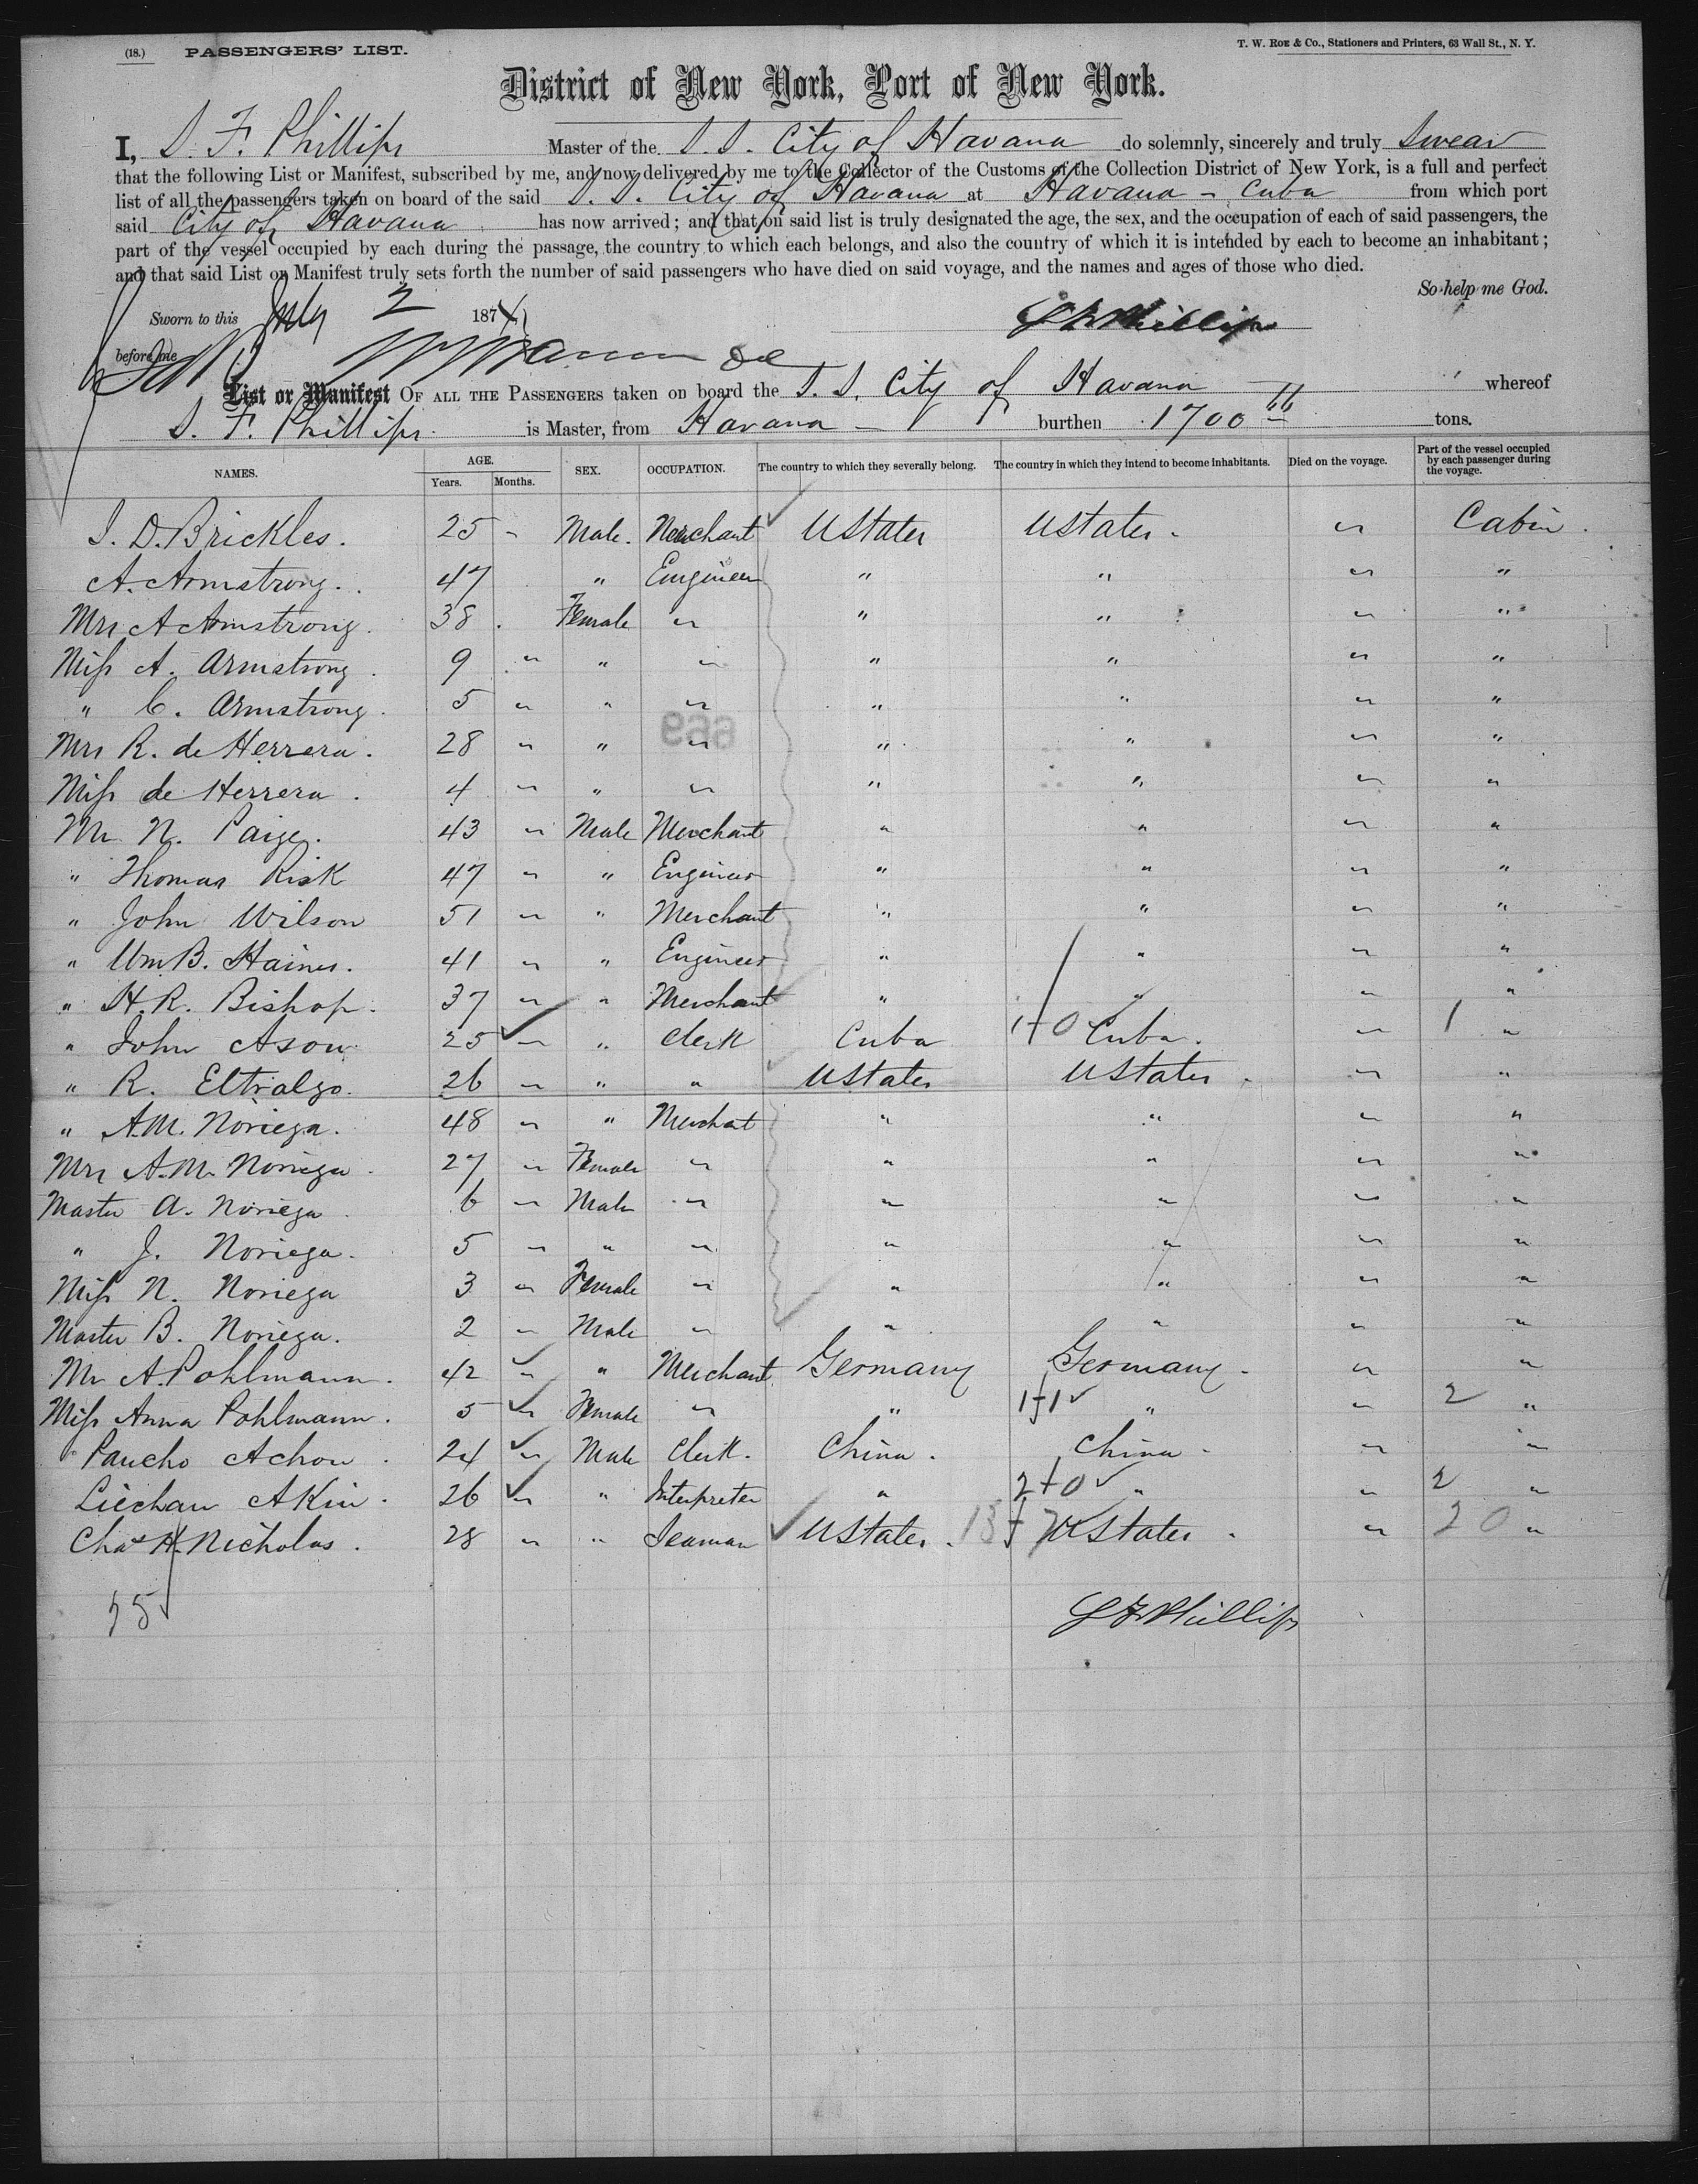 (18.) PASSENGERS' LIST. T. W. ROE & Co., Stationers and Printers, 63 Wall St., N. Y.
District of New York, Port of New York.
I, S. F. Phillips Master of the S. S. City of Havana do solemnly, sincerely and truly Swear
that the following List or Manifest, subscribed by me, and now delivered by me to the Collector of the Customs of the Collection District of New York, is a full and perfect
list of all the passengers taken on board of the said S. S. City of Havana at Havana - Cuba from which port
said City of Havana has now arrived; and that on said list is truly designated the age, the sex, and the occupation of each of said passengers, the
part of the vessel occupied by each during the passage, the country to which each belongs, and also the country of which it is intended by each to become an inhabitant;
and that said List or Manifest truly sets forth the number of said passengers who have died on said voyage, and the names and ages of those who died.
So help me God.
Sworn to this July 2 187 S F Phillips
before me
List or Manifest OF ALL THE PASSENGERS taken on board the S. S. City of Havana whereof
S. F. Phillips is Master, from Havana burthen 1700 tons.
NAMES. AGE. Years. Months. SEX. OCCUPATION. The country to which they severally belong. The country in which they intend to become inhabitants. Died on the voyage. Part of the vessel occupied by each passenger during the voyage.
J. D. Brickles. 25 - Male. Merchant UStates UStates - " Cabin.
A. Armstrong. 47 " Engineer " " " "
Mrs A Armstrong. 38 Female " " " " "
Miss A. Armstrong 9 " " " " " " "
" C. Armstrong. 5 " " " " " " "
Mrs R. de Herrera. 28 " " " " " " "
Miss de Herrera. 4 " " " " " " "
Mr N. Paige. 43 " Male Merchant " " " "
" Thomas Risk 47 " " Engineer " " " "
" John Wilson 51 " " Merchant " " " "
" Wm. B. Haines. 41 " " Engineer " " " "
" H. R. Bishop. 37 " " Merchant " " " "
" John Ason 25 " " Clerk Cuba 1+0 Cuba. " 1 "
" R. Eltralgo. 26 " " " UStates UStates - " "
" A. M. Noriega. 48 " " Merchat " " " "
Mrs A. M. Noriega. 27 " Female " " " " "
Master A. Noriega 6 " Male " " " " "
" J. Noriega. 5 " " " " " " "
Miss N. Noriega 3 " Female " " " " "
Master B. Noriega. 2 " Male " " " " "
Mr A. Pohlmann. 42 " " Merchant Germany Germany - " "
Miss Anna Pohlmann. 5 " Female " " 1+1 " " 2 "
Pancho Achon. 24 " Male Clerk. China. China - " "
Liechau AKin. 26 " " Interpreter " 2+0 " " 2 "
Chas H. Nicholas. 28 " " Seaman UStates. 13+7 UStates. " 20 "
25 S F Phillips